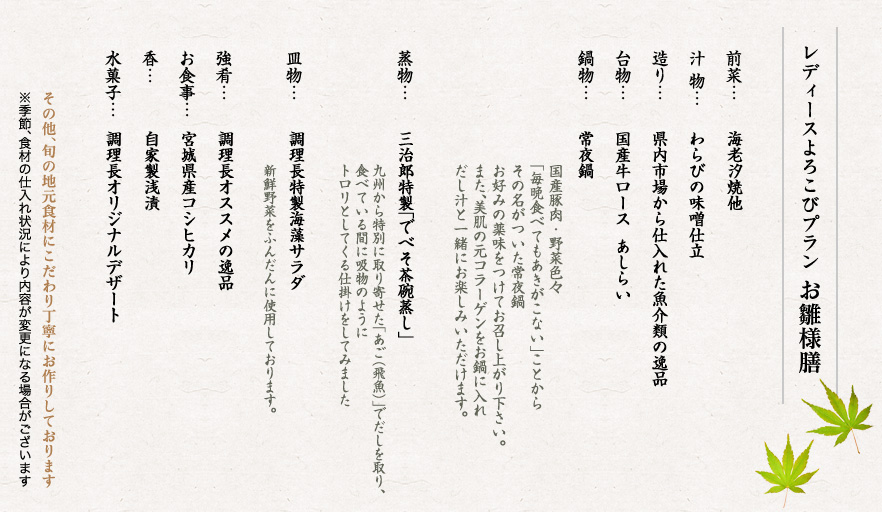 レディースよろこびプラン お雛様膳
前菜… 海老汐焼他
汁物… わらびの味噌仕立
造り… 県内市場から仕入れた魚介類の逸品
台物… 国産牛ロース あしらい
鍋物… 常夜鍋
国産豚肉・野菜色々
「毎晩食べてもあきがこない」ことから
その名がついた常夜鍋
お好みの薬味をつけてお召し上がり下さい。
また、美肌の元コラーゲンをお鍋に入れ
だし汁と一緒にお楽しみいただけます。
蒸物… 三治郎特製「でべそ茶碗蒸し」
九州から特別に取り寄せた「あご(飛魚)」でだしを取り、
食べている間に吸物のように
トロリとしてくる仕掛けをしてみました
皿物… 調理長特製海藻サラダ
新鮮野菜をふんだんに使用しております。
強肴… 調理長オススメの逸品
お食事… 宮城県産コシヒカリ
香… 自家製浅漬
水菓子… 調理長オリジナルデザート
その他、旬の地元食材にこだわり丁寧にお作りしております
※季節、食材の仕入れ状況により内容が変更になる場合がございます